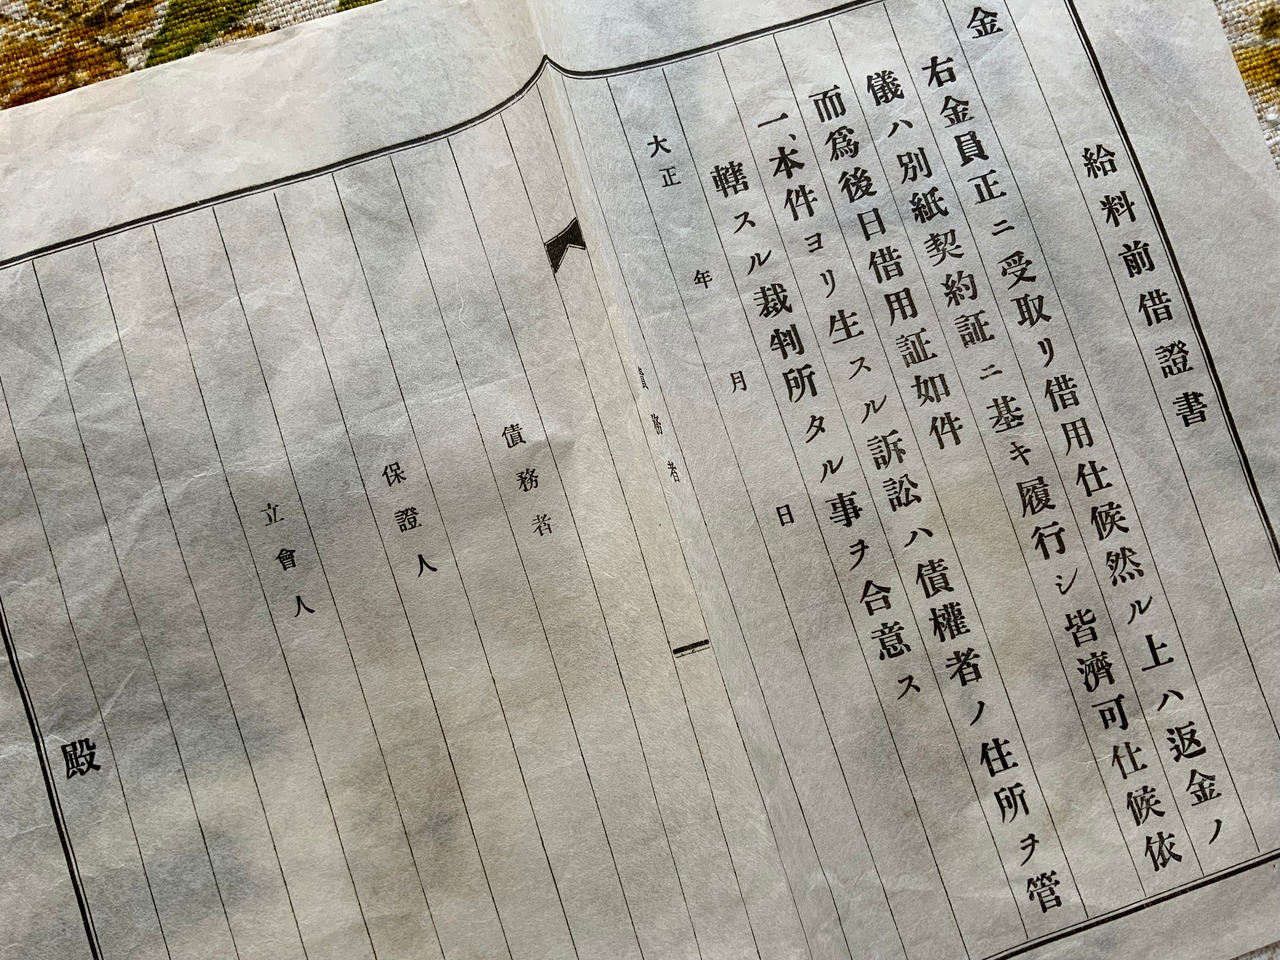 給料前借證書
金
右金員正ニ受取リ借用仕候然ル上ハ返金ノ
儀ハ別紙契約証ニ基キ履行シ皆濟可仕候依
而爲後日借用証如件
一、本件ヨリ生スル訴訟ハ債權者ノ住所ヲ管
轄スル裁判所タル事ヲ合意ス
大正 年 月 日
債務者
債務者
保證人
立會人
殿